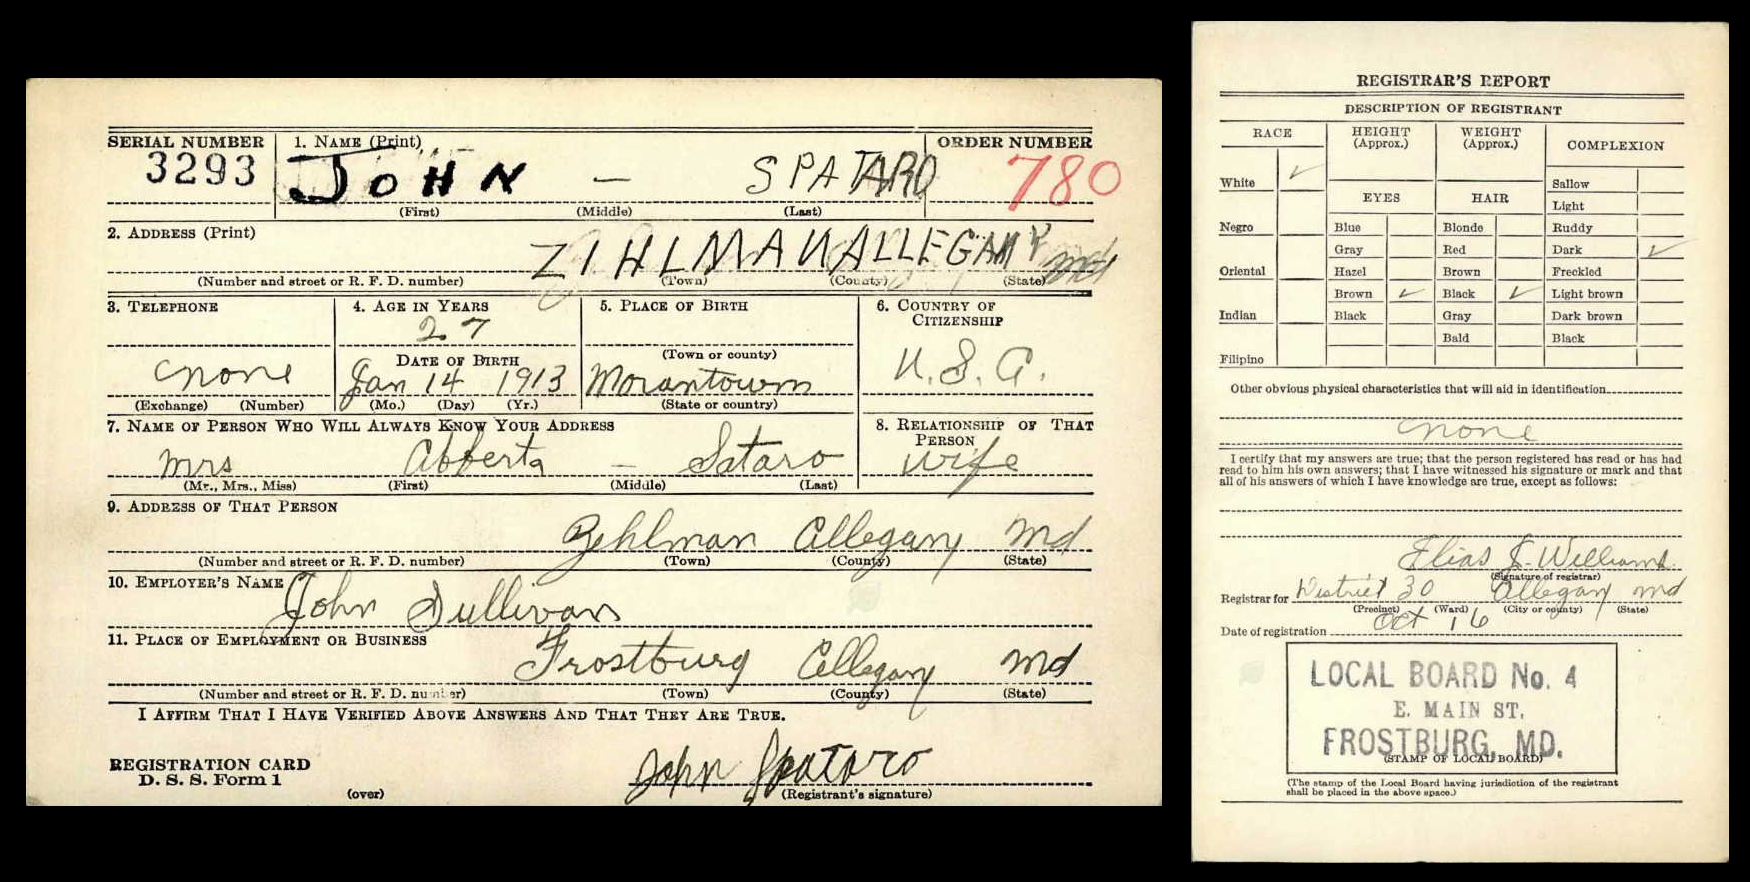 SERIAL NUMBER 1. NAME (Print) ORDER NUMBER
3293 JOHN — SPATARO 780
(First) (Middle) (Last)
2. ADDRESS (Print)
ZIHLMAN ALLEGANY Md
(Number and street or R. F. D. number) (Town) (County) (State)
3. TELEPHONE 4. AGE IN YEARS 5. PLACE OF BIRTH 6. COUNTRY OF
CITIZENSHIP
27
DATE OF BIRTH (Town or county)
none Jan 14 1913 Morantown U.S.A.
(Exchange) (Number) (Mo.) (Day) (Yr.) (State or country)
7. NAME OF PERSON WHO WILL ALWAYS KNOW YOUR ADDRESS 8. RELATIONSHIP OF THAT
PERSON
Mrs — Sataro wife
(Mr., Mrs., Miss) (First) (Middle) (Last)
9. ADDRESS OF THAT PERSON
Zehlman Allegany Md
(Number and street or R. F. D. number) (Town) (County) (State)
10. EMPLOYER'S NAME
John Sullivan
11. PLACE OF EMPLOYMENT OR BUSINESS
Frostburg Allegany Md
(Number and street or R. F. D. number) (Town) (County) (State)
I AFFIRM THAT I HAVE VERIFIED ABOVE ANSWERS AND THAT THEY ARE TRUE.
REGISTRATION CARD
D. S. S. Form 1
John Spataro
(over) (Registrant's signature)
REGISTRAR'S REPORT
DESCRIPTION OF REGISTRANT
RACE HEIGHT (Approx.) WEIGHT (Approx.) COMPLEXION
White ✓ Sallow
EYES HAIR Light
Negro Blue Blonde Ruddy
Gray Red Dark ✓
Oriental Hazel Brown Freckled
Brown ✓ Black ✓ Light brown
Indian Black Gray Dark brown
Bald Black
Filipino
Other obvious physical characteristics that will aid in identification
none
I certify that my answers are true; that the person registered has read or has had
read to him his own answers; that I have witnessed his signature or mark and that
all of his answers of which I have knowledge are true, except as follows:
Elias J. Williams
(Signature of registrar)
Registrar for District 30 Allegany Md
(Precinct) (Ward) (City or county) (State)
Date of registration Oct 16
LOCAL BOARD No. 4
E. MAIN ST.
FROSTBURG, MD.
(STAMP OF LOCAL BOARD)
(The stamp of the Local Board having jurisdiction of the registrant
shall be placed in the above space.)